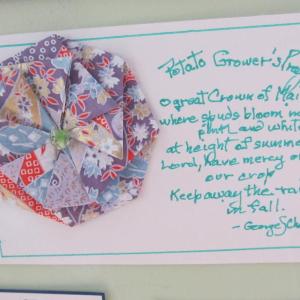 Potato Grower's
O great Crown of
where spuds bloom
pink and
at height of summer
Lord, have mercy o
our crop
Keep away the
in fall.
- George